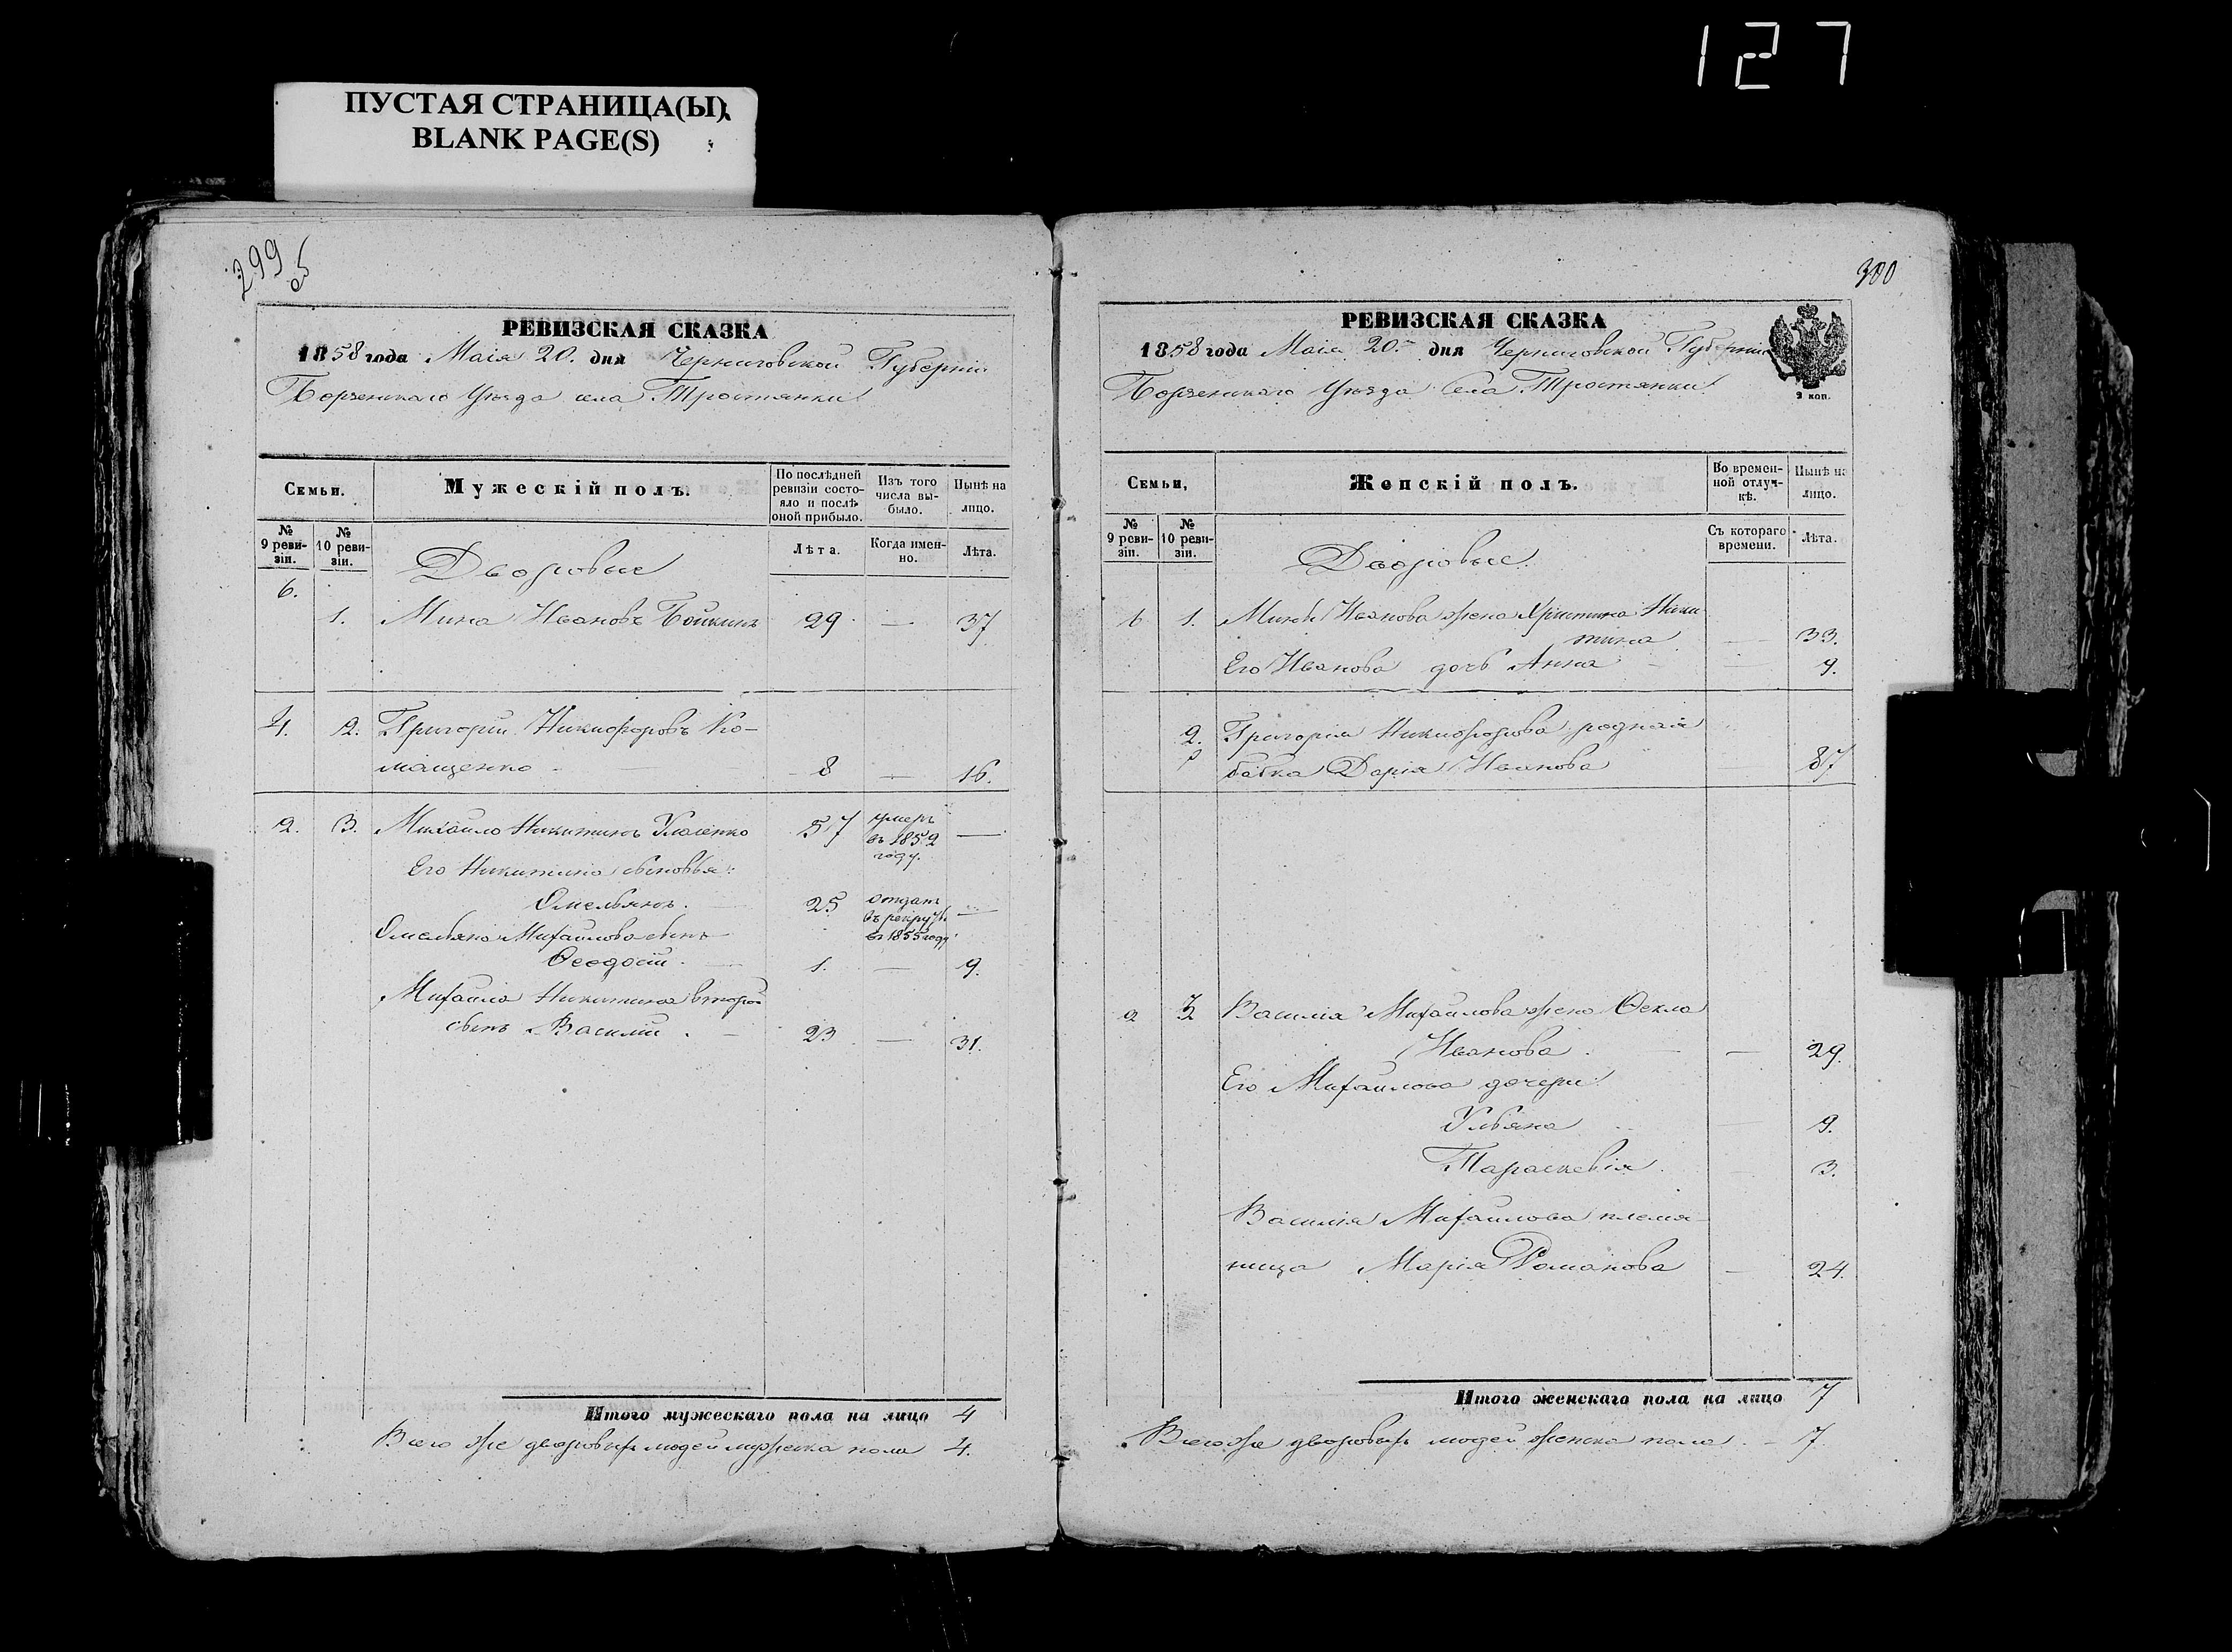 127
ПУСТАЯ СТРАНИЦА(Ы)
BLANK PAGE(S)
299
об
РЕВИЗСКАЯ СКАЗКА
1858 года Маія 20. дня Черниговской Губерніи
Борзенскаго Уѣзда села Тростянки
Семьи.
Мужескій полъ.
По послѣдней ревизіи состояло и послѣ оной прибыло.
Изъ того числа выбыло.
Нынѣ на лицо.
№ 9 ревизіи.
№ 10 ревизіи.
Лѣта.
Когда именно.
Лѣта.
Дворовые
6.
1. Мина Ивановъ Бойкинъ 29 — 37
4. 2. Григорій Никифоровъ Ко-
мащенко 8 — 16.
2. 3. Михайло Никитинъ 57 умеръ —
въ 1852
году.
Его Никитина сыновья:
Омельянъ. 25 отданъ —
въ рекруты
въ 1855 году
Омельяна Михайлова сынъ
Ѳеодосій. 1. — 9.
Михайла Никитина второй
сынъ Василій. 23 — 31.
Итого мужескаго пола на лицо 4
Всего же дворовыхъ людей мужеска пола 4.
300
РЕВИЗСКАЯ СКАЗКА
1858 года Маія 20. дня Черниговской Губерніи
Борзенскаго Уѣзда Села Тростянки
2 коп.
Семьи,
Женскій полъ.
Во временной отлучкѣ.
Нынѣ на лицо.
№ 9 ревизіи.
№ 10 ревизіи.
Съ котораго времени.
Лѣта.
Дворовые.
6 1. Мины Иванова жена Христина Ники
тина — 33.
Его Иванова дочь Анна 9.
2. Григорія Никифорова родная
бабка Дарія Иванова 87
2 3 Василія Михайлова жена Ѳекла
Иванова. — 29.
Его Михайлова дочери
Ульяна 9.
Параскевія. 3.
Василія Михайлова племя-
ница Марія Романова — 24.
Итого женскаго пола на лицо 7
Всего же дворовыхъ людей женска пола. 7